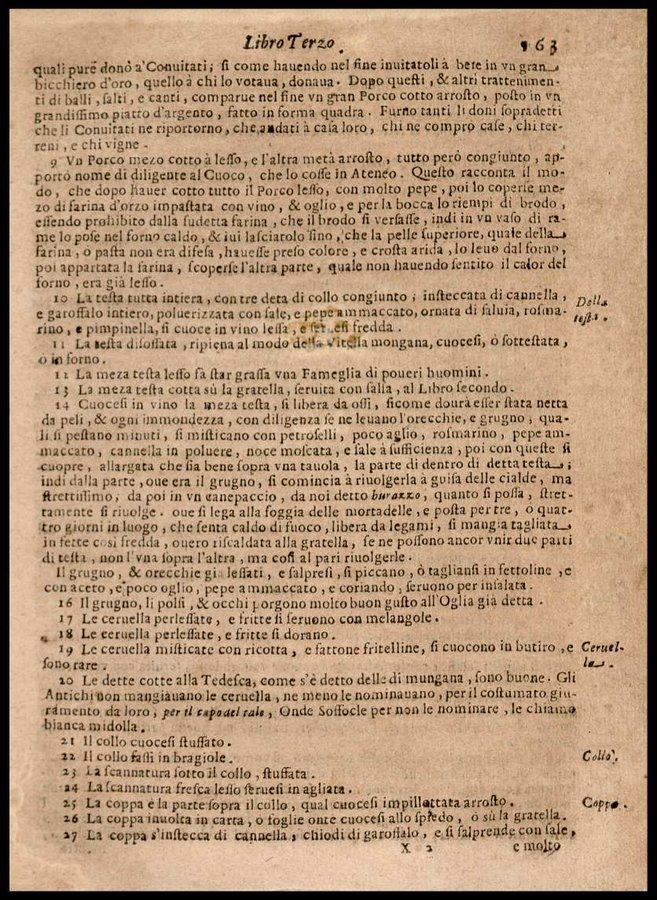 Libro Terzo. 163
quali pure donò a'Conuitati; ſi come hauendo nel fine inuitatoli à bere in vn gran
bicchiero d'oro, quello à chi lo votaua, donaua. Dopo queſti, & altri trattenimen-
ti di balli, ſalti, e canti, comparue nel fine vn gran Porco cotto arroſto, poſto in vn
grandiſſimo piatto d'argento, fatto in forma quadra. Furno tanti li doni ſopradetti
che li Conuitati ne riportorno, che, andati à caſa loro, chi ne comprò caſe, chi ter-
reni, e chi vigne.
9 Vn Porco mezo cotto à leſſo, e l'altra metà arroſto, tutto però congiunto, ap-
portò nome di diligente al Cuoco, che lo coſſe in Ateneo. Queſto racconta il mo-
do, che dopo hauer cotto tutto il Porco leſſo, con molto pepe, poi lo coperſe me-
zo di farina d'orzo impaſtata con vino, & oglio, e per la bocca lo riempì di brodo,
eſſendo prohibito dalla ſudetta farina, che il brodo ſi verſaſſe, indi in vn vaſo di ra-
me lo poſe nel forno caldo, & iui laſciatolo ſino, che la pelle ſuperiore, quale della
farina, ò paſta non era difeſa, haueſſe preſo colore, e croſta arida, lo leuò dal forno,
poi appartata la farina, ſcoperſe l'altra parte, quale non hauendo ſentito il calor del
forno, era già leſſo.
10 La teſta tutta intiera, con tre deta di collo congiunto; inſteccata di cannella,
e garoffalo intiero, poluerizzata con ſale, e pepe ammaccato, ornata di ſaluia, roſma-
rino, e pimpinella, ſi cuoce in vino leſſa, e ſerueſi fredda.
Della
teſta.
11 La teſta diſoſſata, ripiena al modo della Vitella mongana, cuoceſi, ò ſotteſtata,
ò in forno.
12 La meza teſta leſſo fà ſtar graſſa vna Fameglia di poueri huomini.
13 La meza teſta cotta sù la gratella, ſeruita con ſalſa, al Libro ſecondo.
14 Cuoceſi in vino la meza teſta, ſi libera da oſſi, ſicome dourà eſſer ſtata netta
da peli, & ogni immondezza, con diligenza ſe ne leuano l'orecchie, e grugno; qua-
li ſi peſtano minuti, ſi miſticano con petroſelli, poco aglio, roſmarino, pepe am-
maccato, cannella in poluere, noce moſcata, e ſale à ſufficienza, poi con queſte ſi
cuopre, allargata che ſia bene ſopra vna tauola, la parte di dentro di detta teſta;
indi dalla parte, oue era il grugno, ſi comincia à riuolgerla à guiſa delle cialde, ma
ſtrettiſſimo; da poi in vn canepaccio, da noi detto burazzo, quanto ſi poſſa, ſtret-
tamente ſi riuolge. oue ſi lega alla foggia delle mortadelle, e poſta per tre, ò quat-
tro giorni in luogo, che ſenta caldo di fuoco, libera da legami, ſi mangia tagliata
in fette così fredda, ouero riſcaldata alla gratella, ſe ne poſſono ancor vnir due parti
di teſta, non l'vna ſopra l'altra, ma coſì al pari riuolgerle.
Il grugno, & orecchie già leſſati, e ſalpreſi, ſi piccano, ò taglianſi in fettoline, e
con aceto, e poco oglio, pepe ammaccato, e coriando; ſeruono per inſalata.
16 Il grugno, li polſi, & occhi porgono molto buon guſto all'Oglia già detta.
17 Le ceruella perleſſate, e fritte ſi ſeruono con melangole.
18 Le ceruella perleſſate, e fritte ſi dorano.
19 Le ceruella miſticate con ricotta, e fattone fritelline, ſi cuocono in butiro, e
ſono rare.
Ceruel-
la.
20 Le dette cotte alla Tedeſca, come s'è detto delle di mungana, ſono buone. Gli
Antichi non mangiauano le ceruella, ne meno le nominauano, per il coſtumato giu-
ramento da loro, per il capo del tale, Onde Soffocle per non le nominare, le chiamò
bianca midolla.
21 Il collo cuoceſi ſtuffato.
22 Il collo faſſi in bragiole.
Collo.
23 La ſcannatura ſotto il collo, ſtuffata.
24 La ſcannatura freſca leſſo ſerueſi in agliata.
25 La coppa è la parte ſopra il collo, qual cuoceſi impillottata arroſto.
Coppa.
26 La coppa inuolta in carta, ò foglie onte cuoceſi allo ſpiedo, ò sù la gratella.
27 La coppa s'inſtecca di cannella, chiodi di garoffalo, e ſi ſalprende con ſale,
X 2 e molto